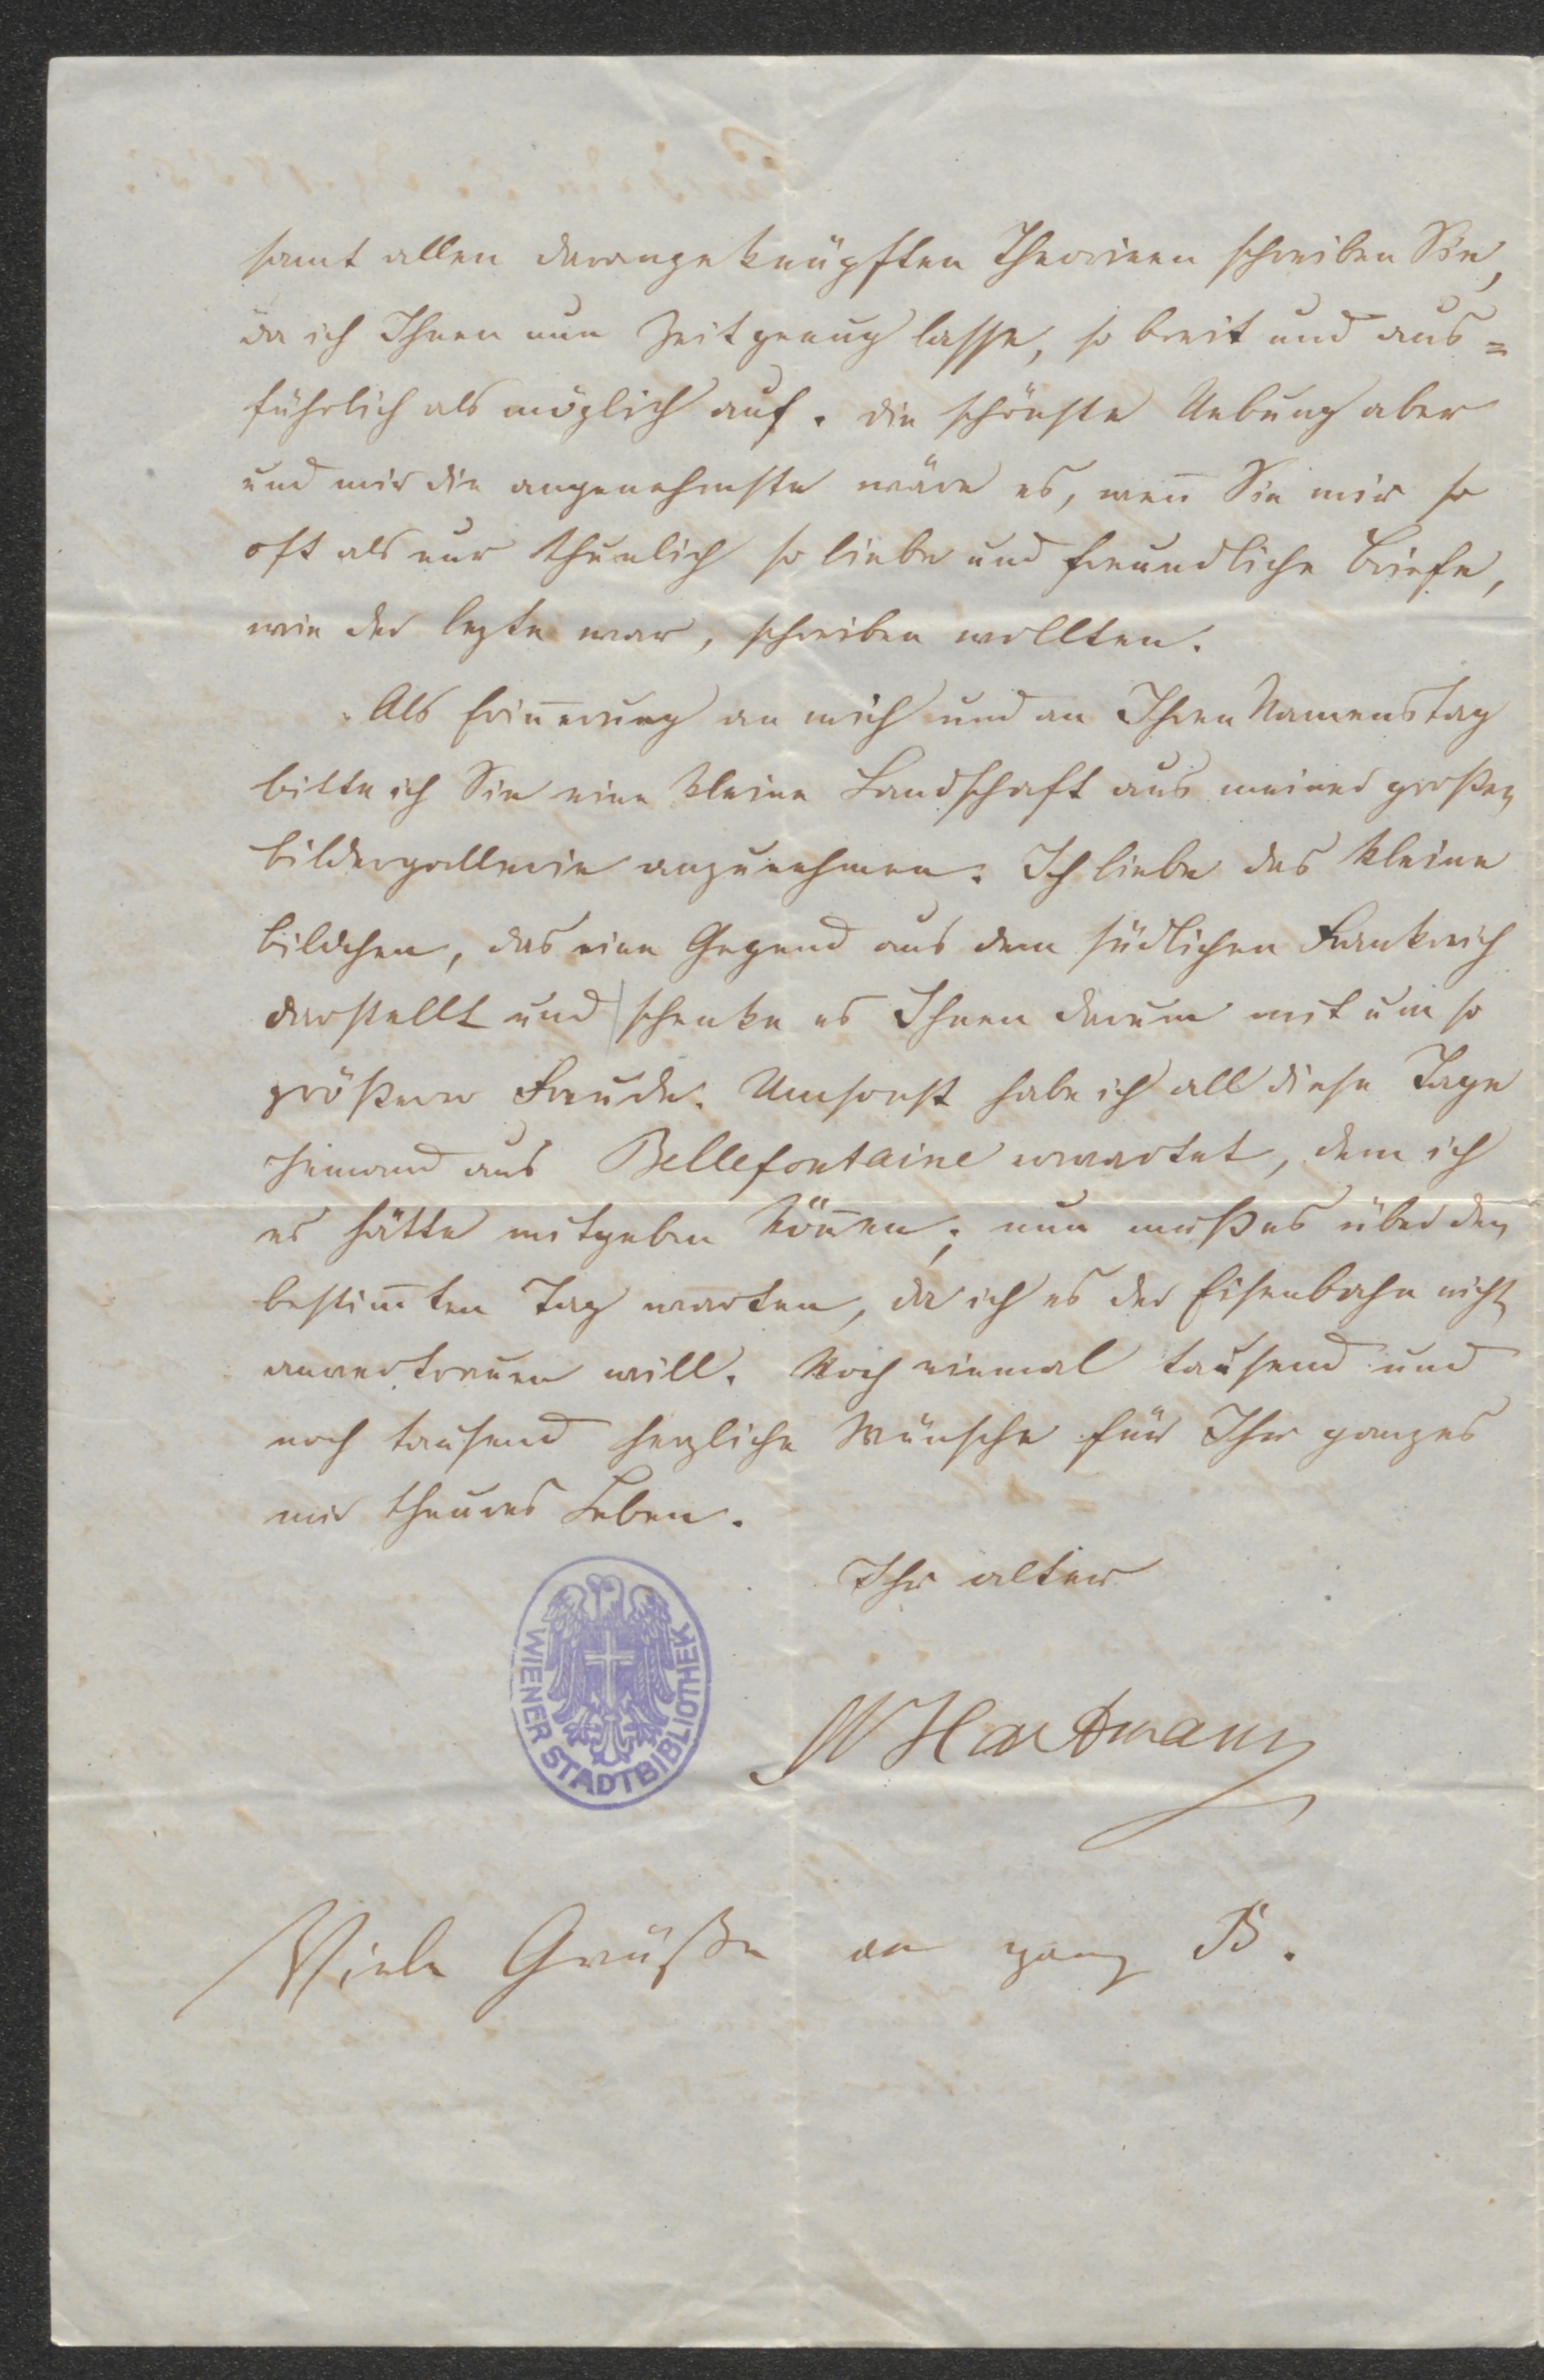 samt allen darangeknüpften Theorieen schreiben Sie,
da ich Ihnen nun Zeit genug lasse, so breit und aus=
führlich als möglich auf. Die schönste Uebung aber
und mir die angenehmste wäre es, weñ Sie mir so
oft als nur thunlich so liebe und freundliche Briefe,
wie der lezte war, schreiben wollten.
Als Eriñerung an mich und an Ihren Namenstag
bitte ich Sie eine kleine Landschaft aus meiner großen
Bildergallerie anzunehmen. Ich liebe das kleine
Bildchen, das eine Gegend aus dem südlichen Frankreich
darstellt und schenke es Ihnen darum mit um so
größerer Freude. Umsonst habe ich all diese Tage
jemand aus Bellefontaine erwartet, dem ich
es hätte mitgeben köñen; nun muß es über den
bestim̃ten Tag warten, da ich es der Eisenbahn nicht
anvertrauen will. Noch einmal tausend und
noch tausend herzliche Wünsche für Ihr ganzes
mir theures Leben.
Ihr alter
WIENER STADTBIBLIOTHEK
MHartmann
Viele Grüße an ganz B.